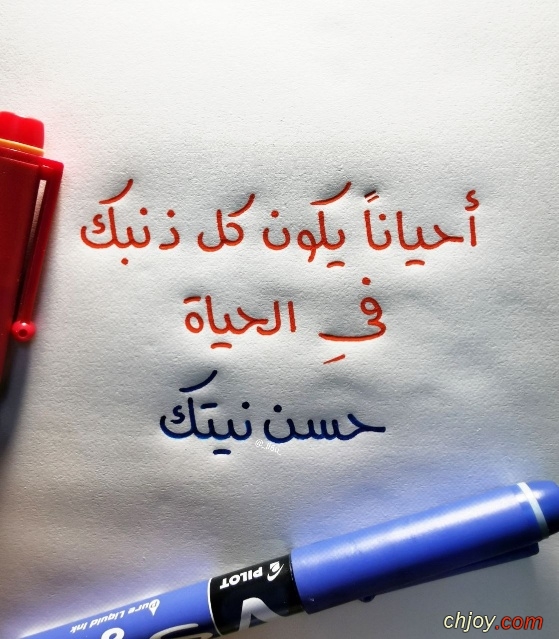 أحياناً يكون كل ذنبك
في الحياة
حسن نيتك
PILOT
Pure Liquid Ink
chjoy.com